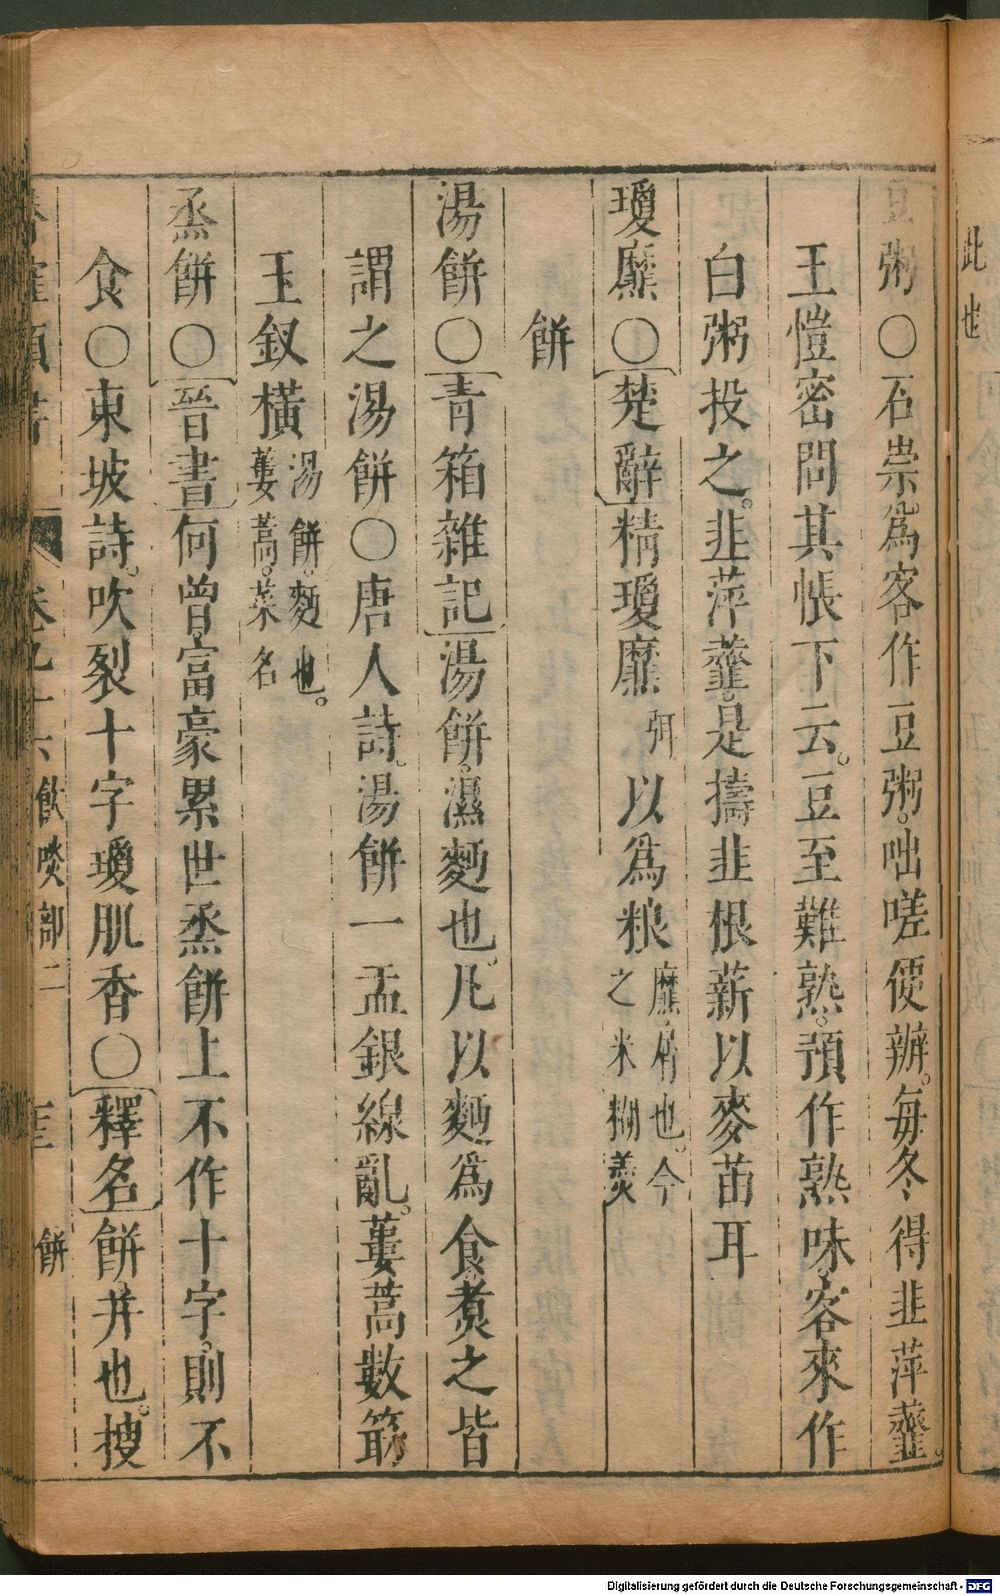 此也
豆粥〇石崇爲客作豆粥咄嗟便辦每冬得韭萍虀
王愷密問其帳下云豆至難熟預作熟味客來作
白粥投之韭萍虀是擣韭根薪以麥苗耳
瓊靡〇楚辭精瓊靡弭以爲粻靡屑也今之米糊羹
餅
湯餅〇青箱雜記湯餅濕麪也凡以麪爲食煮之皆
謂之湯餅〇唐人詩湯餅一盂銀線亂蔞蒿數筯
玉釵橫湯餅麪也蔞蒿菜名
烝餅〇晉書何曾富豪累世烝餅上不作十字則不
食〇東坡詩吹裂十字瓊肌香〇釋名餅并也搜
飲啖部二 餅
Digitalisierung gefördert durch die Deutsche Forschungsgemeinschaft - DFG